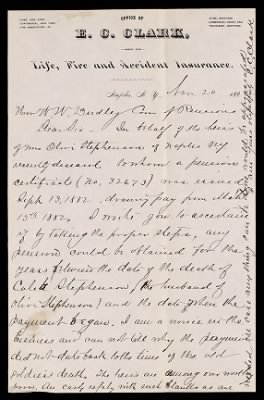 OFFICE OF
E. C. CLARK,
Life, Fire and Accident Insurance.
Naples N.Y. Nov 20 188
Hon W. W. Dudley Com of Pensions
Dear Sir - In behalf of the heirs
of Mrs Olive Stephenson of Naples NY
recently deceased to whom a pension
certificate (No. 32673) was issued
Sept 13, 1882 - drawing pay from March
15th 1882, I write you to ascertain
if by taking the proper steps, any
pension could be obtained for the
years between the date of the death of
Caleb Stephenson (the husband of
Olive Stephenson) and the date where the
payment began. I am a novice in the
business and can not tell why the payment
did not date back to the time of the old
soldiers death. The heirs are among our most
poor. An early reply with such blanks as are